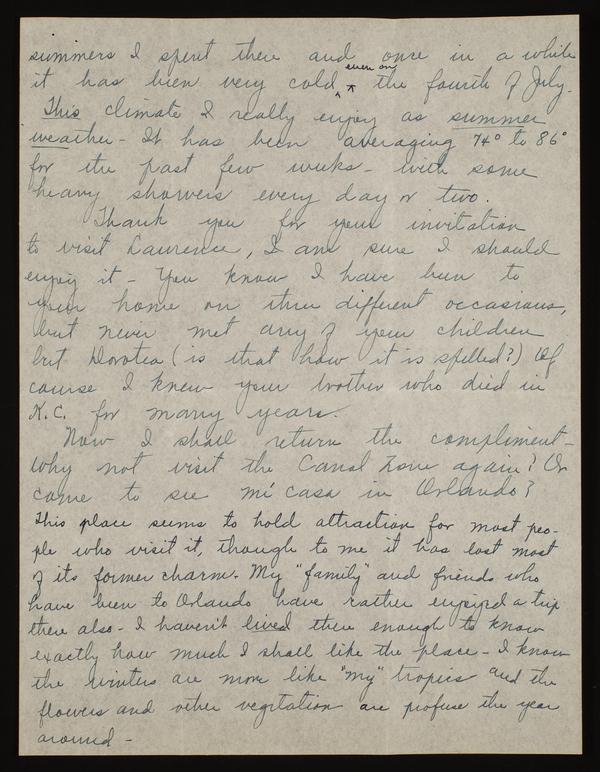 summers I spent there and once in a while
it has been very cold even on the fourth of July.
This climate I really enjoy as summer
weather - It has been averaging 74° to 86°
for the past few weeks - with some
heavy showers every day or two.
Thank you for your invitation
to visit Laurence, I am sure I should
enjoy it - You know I have been to
your home on three different occasions,
but never met any of your children
but Dorotea (is that how it is spelled?) Of
course I knew your brother who died in
K.C. for many years.
Now I shall return the compliment -
Why not visit the Canal Zone again? Or
come to see mi casa in Orlando?
This place seems to hold attraction for most peo-
ple who visit it, though to me it has lost most
of its former charm. My "family" and friends who
have been to Orlando have rather enjoyed a trip
there also - I haven't lived there enough to know
exactly how much I shall like the place - I know
the winters are more like "my" tropics and the
flowers and other vegetation are profuse the year
around -